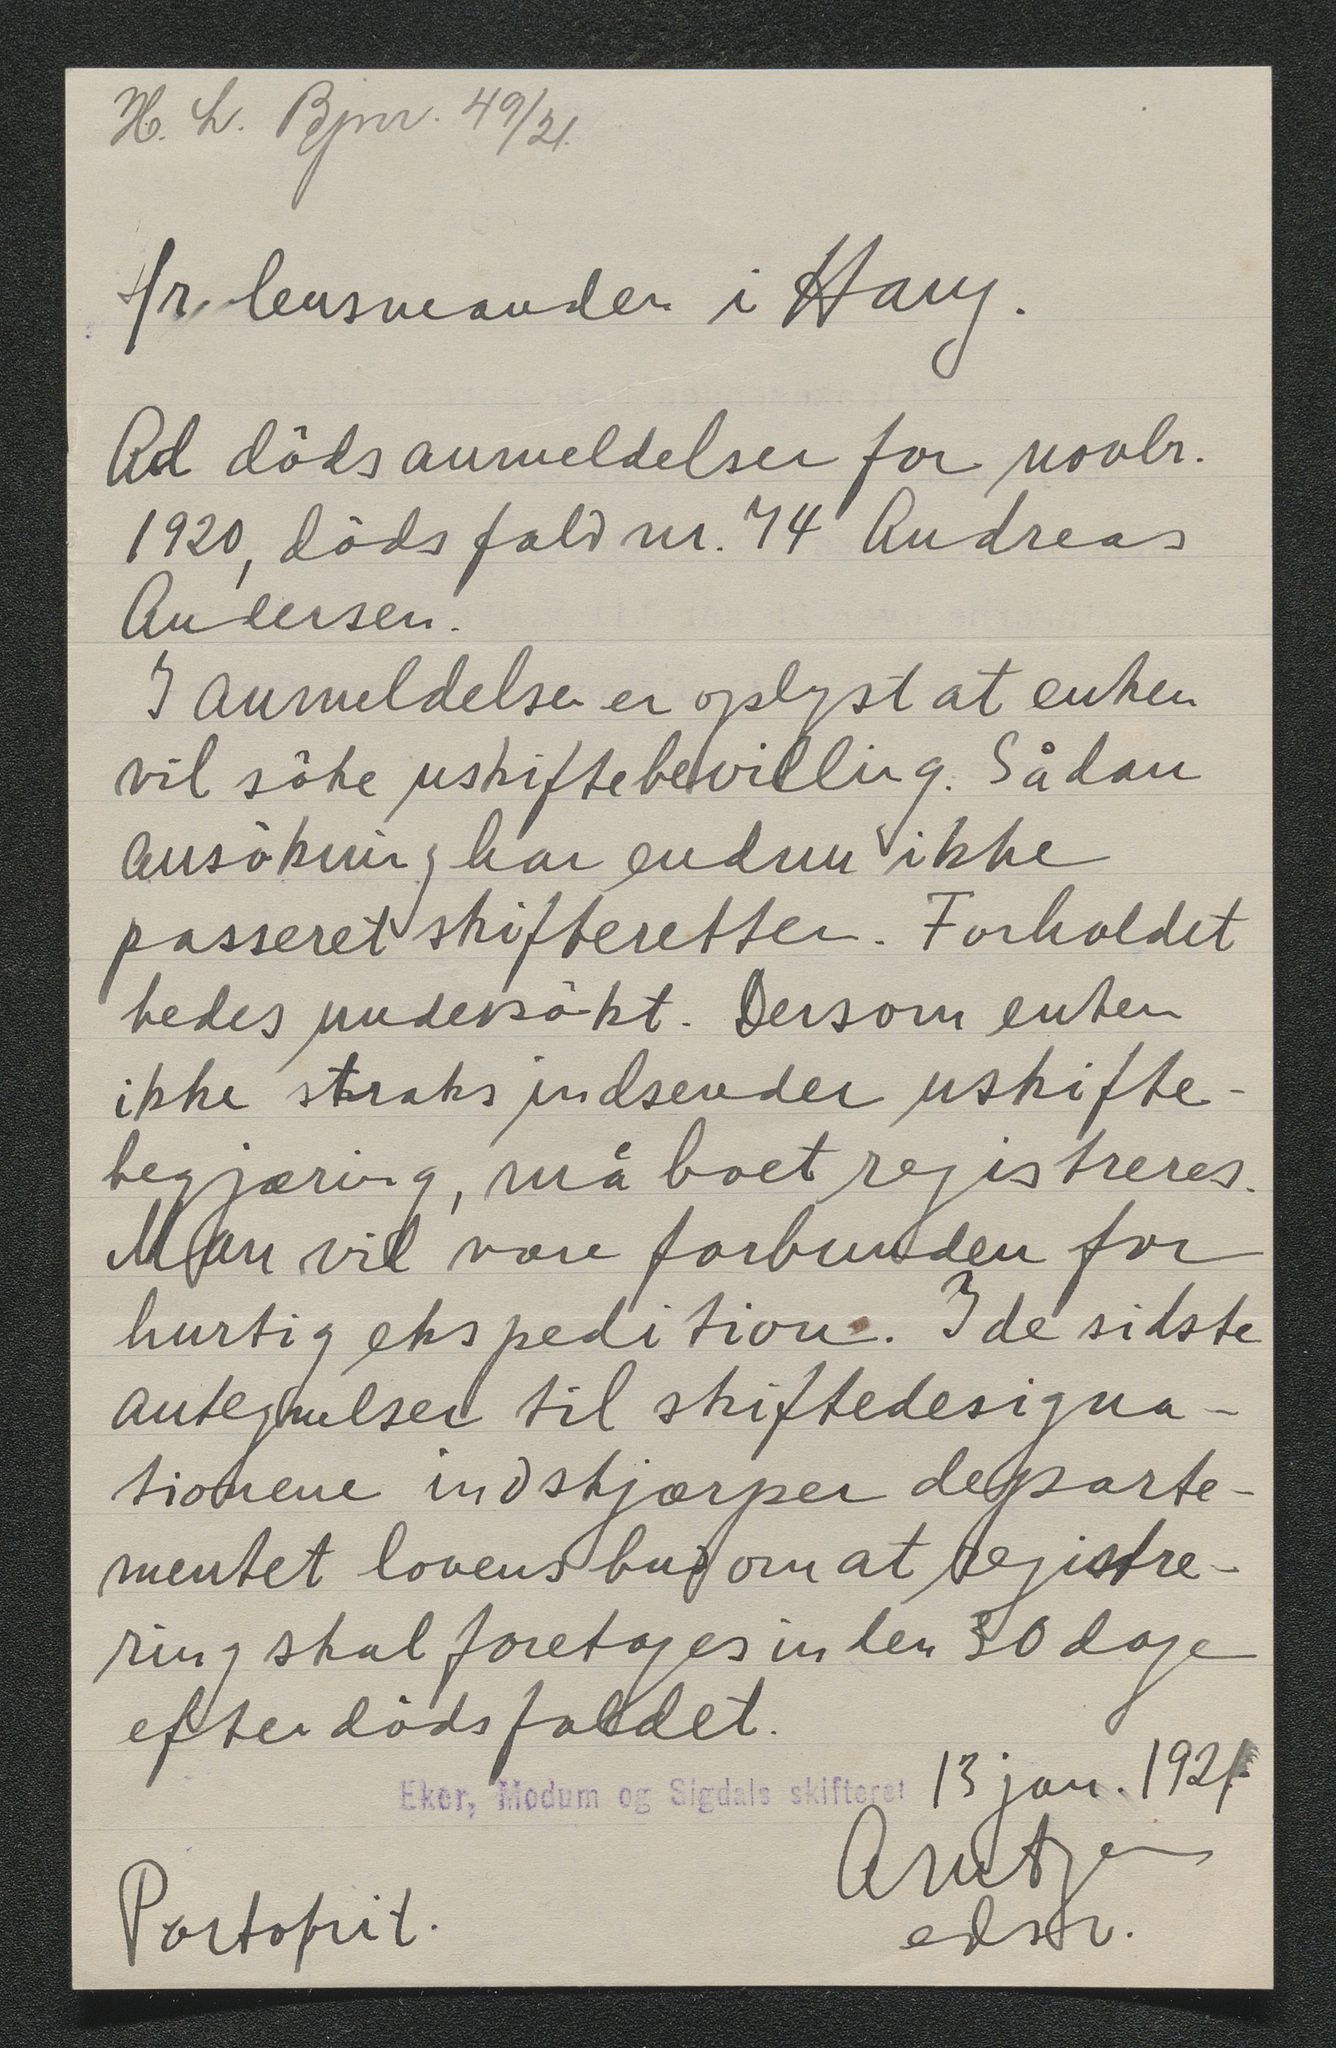 H. L. Bjnr. 49/21.
Hr. lensmanden i Haug.
Ad dödsanmeldelser for novbr.
1920, dödsfald nr. 74 Andreas
Andersen.
I anmeldelsen er oplyst at enken
vil söke uskiftebevilling. Sådan
ansökning har endnu ikke
passeret skifteretten. Forholdet
bedes undersökt. Dersom enken
ikke straks indsender uskifte-
begjæring, må boet registreres.
Man vil være forbunden for
hurtig ekspedition. I de sidste
antegnelser til skiftedesigna-
tionene indskjærper departe-
mentet lovens bud om at registre-
ring skal foretages inden 30 dage
efter dödsfaldet.
Eker, Modum og Sigdals skifteret 13 jan. 1921
Arntzen
edsv.
Portofrit.